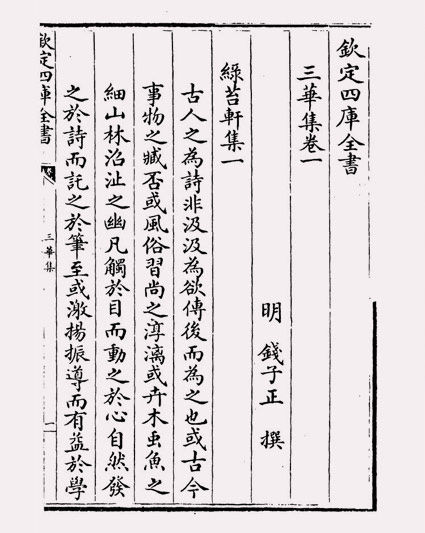 欽定四庫全書
三華集卷一
明 錢子正 撰
綠苔軒集一
古人之為詩非汲汲為欲傳後而為之也或古今
事物之臧否或風俗習尚之淳漓或卉木䖝魚之
細山林沼沚之幽凡觸於目而動之於心自然發
之於詩而託之於筆至或激揚振導而有益於學
欽定四庫全書
三華集